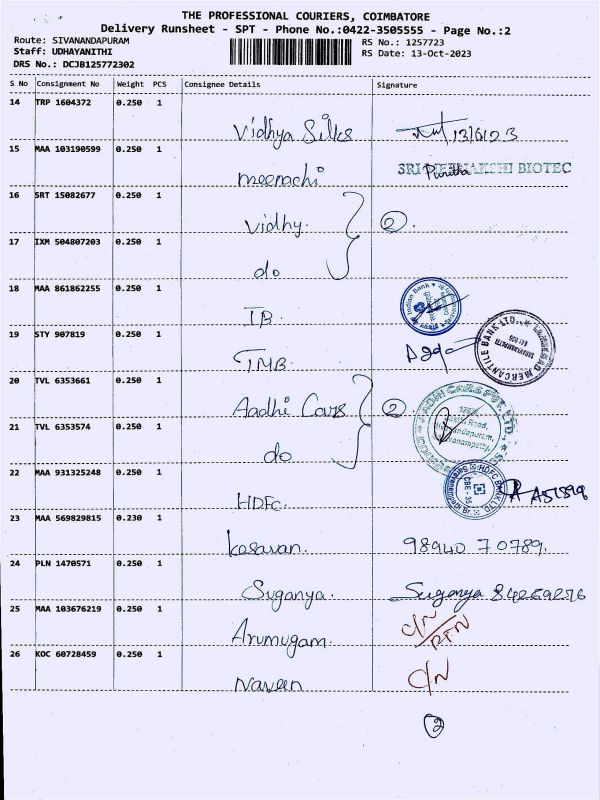 THE PROFESSIONAL COURIERS, COIMBATORE
Delivery Runsheet - SPT - Phone No.:0422-3505555 - Page No.:2
Route: SIVANANDAPURAM RS No.: 1257723
Staff: UDHAYANITHI RS Date: 13-Oct-2023
DRS No.: DCJB125772302
S No Consignment No Weight PCS Consignee Details Signature
14 TRP 1604372 0.250 1
Vidhya Silks
15 MAA 103190599 0.250 1
meenachi SRI MEENAKSHI BIOTEC
16 SRT 15082677 0.250 1
Vidhy. 2.
17 IXM 504807203 0.250 1
do
18 MAA 861862255 0.250 1
IB. Indian Bank
19 STY 907819 0.250 1
TMB. MERCANTILE BANK LTD.
20 TVL 6353661 0.250 1
Aadhi Cars 2 AADHI CARS PVT. LTD.
21 TVL 6353574 0.250 1
do
22 MAA 931325248 0.250 1
HDFC. HDFC BANK LTD
23 MAA 569829815 0.230 1
kesavan. 98940 70789.
24 PLN 1470571 0.250 1
Suganya. Suganya
25 MAA 103676219 0.250 1
Arumugam. C/N
RTN
26 KOC 60728459 0.250 1
Naveen C/N
2